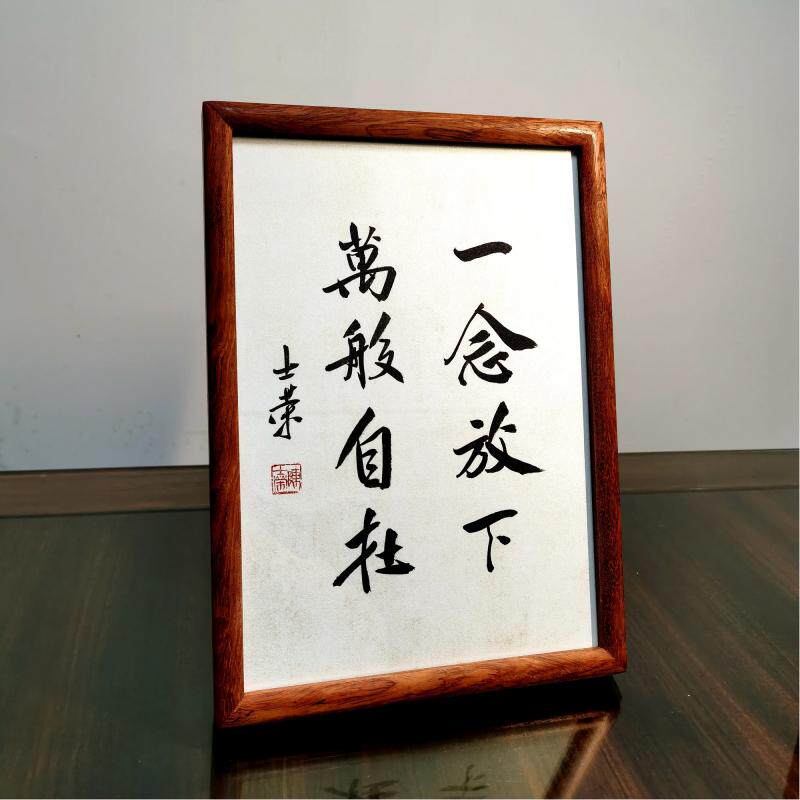 一念放下
萬般自在
士荣